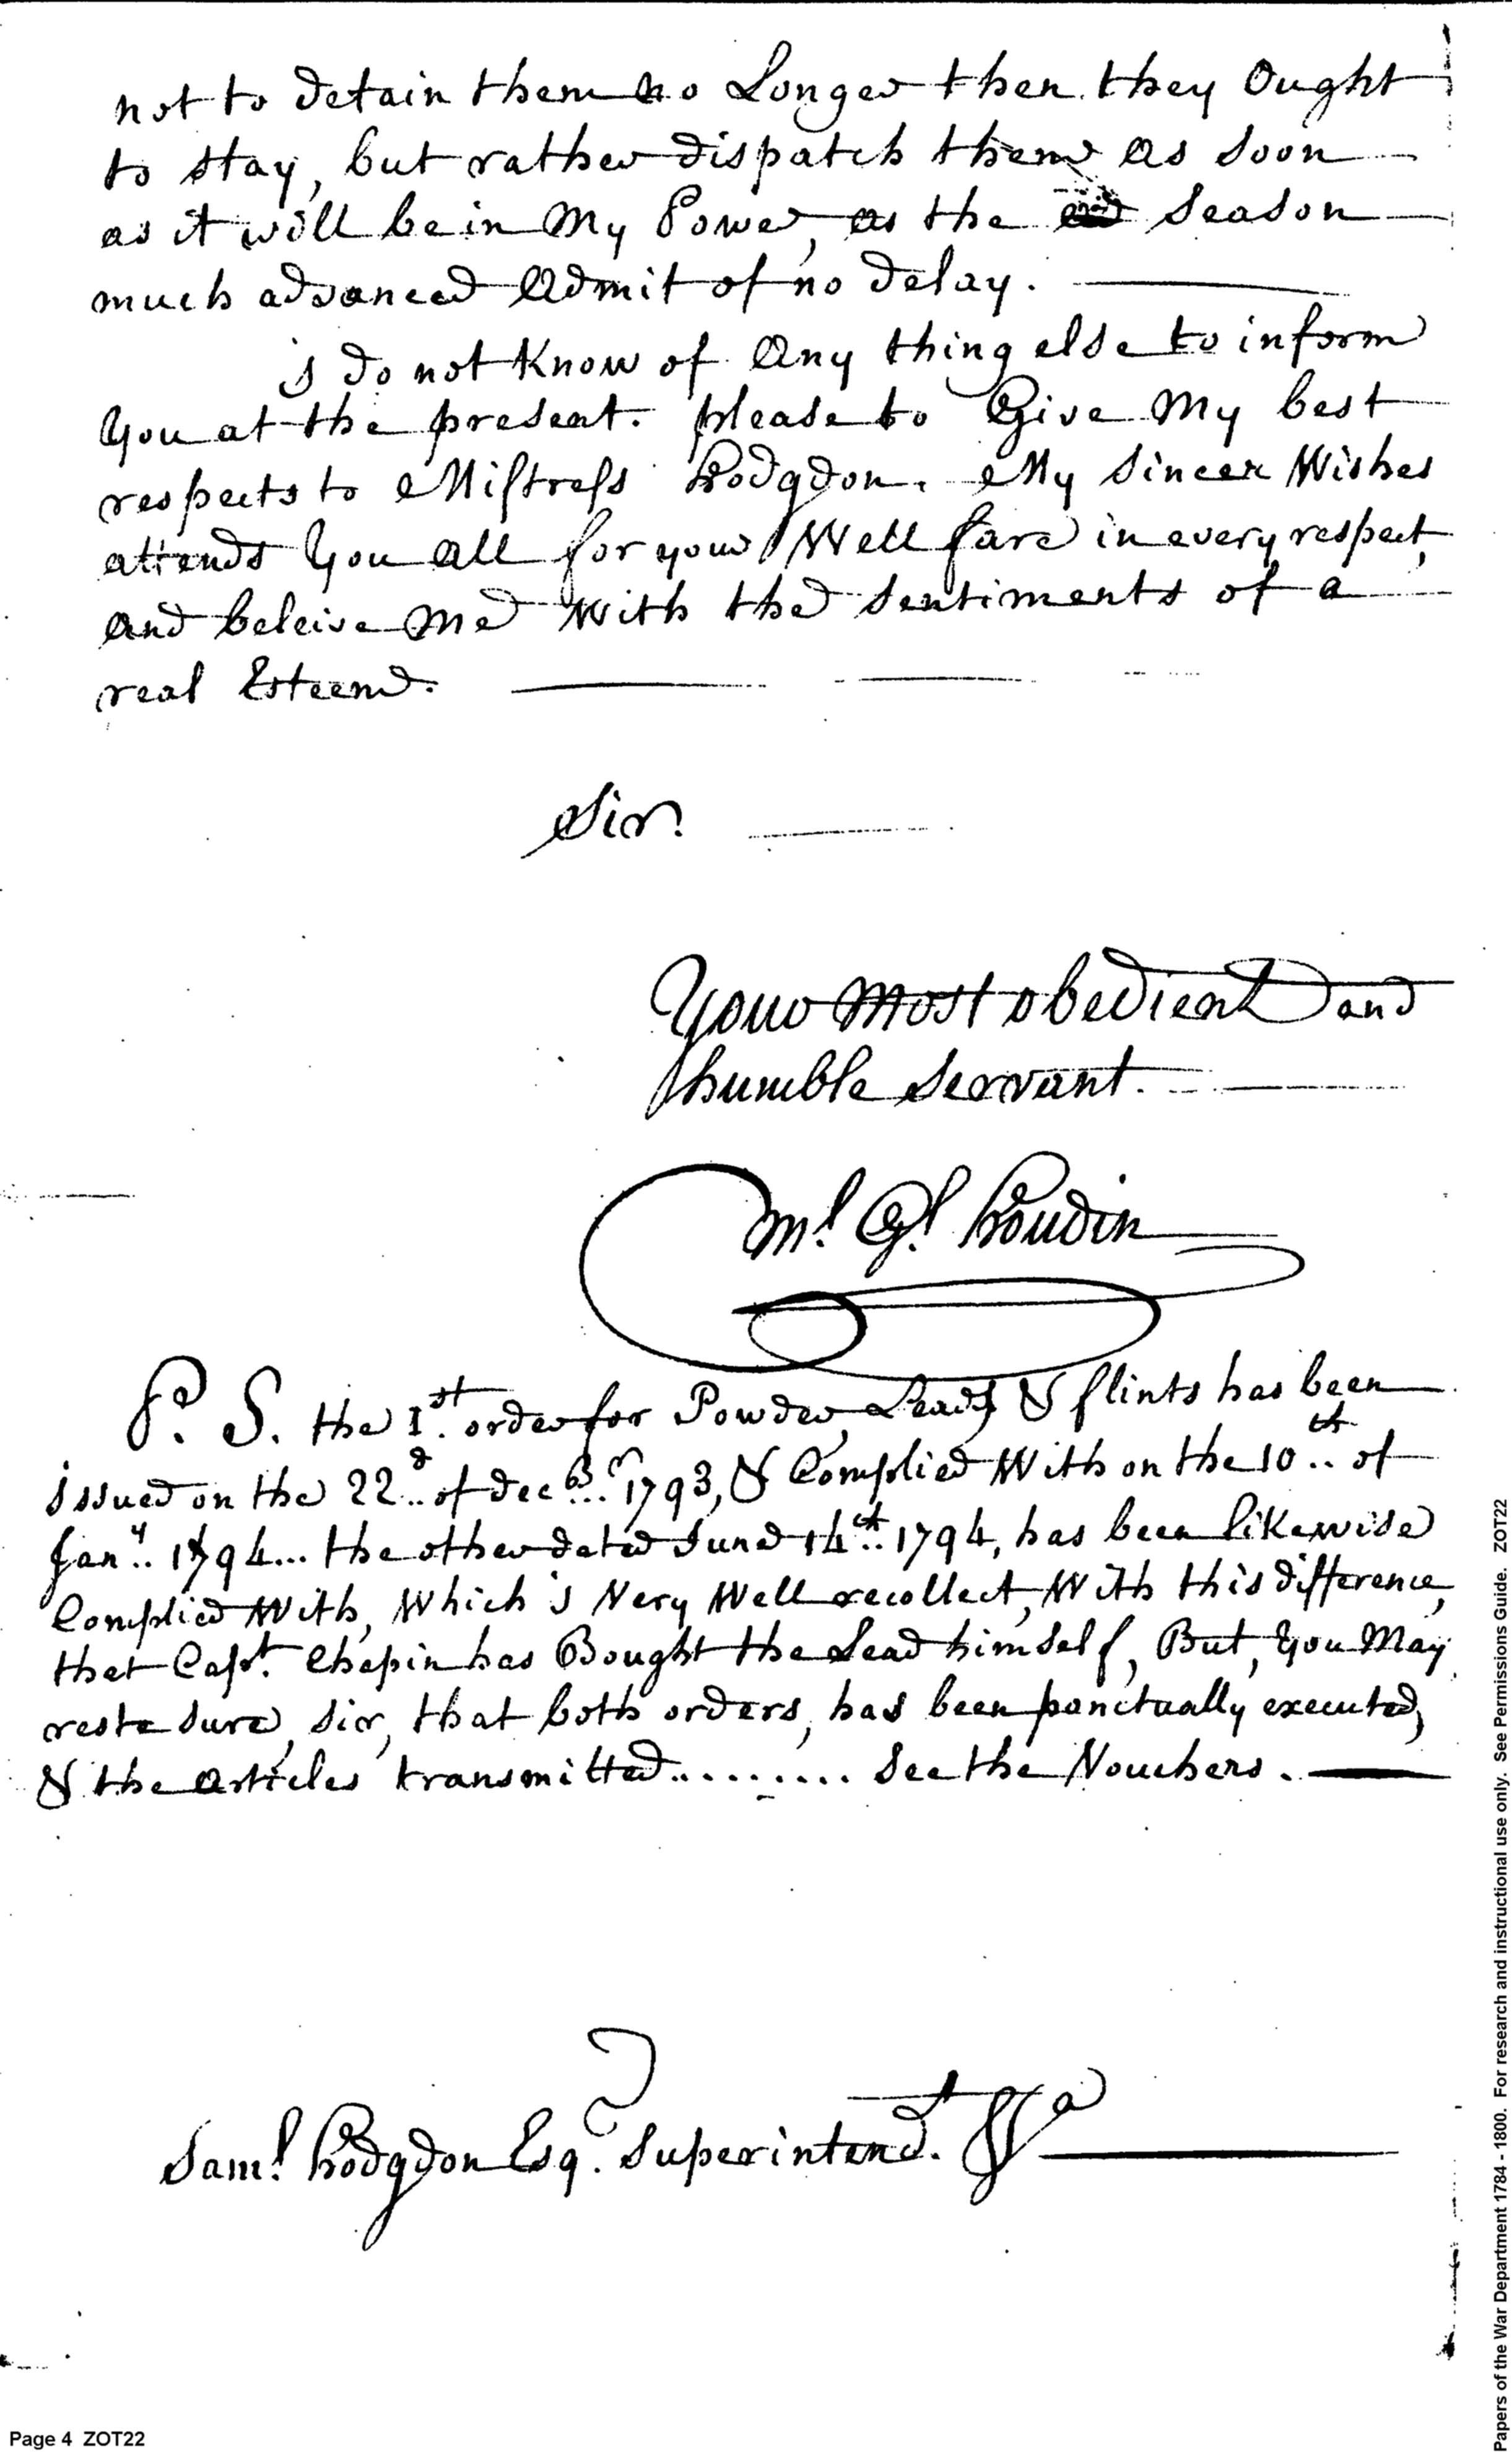 not to detain them no Longer then they Ought
to stay, but rather dispatch them as soon
as it will be in My Power, as the season
much advanced Admit of no delay.
i do not Know of Any thing else to inform
You at the present. please to Give My best
respects to Mistress Hodgdon. My sincer Wishes
attends You All for your Well fare in every respect,
And beleive Me With the sentiments of a
real Esteem.
Sir.
Your most obedient and
humble servant.
Ml. Gl. Houdin
P. S. the 1st. order for Powder, Lead, & flints has been
issued on the 22d.. of decbr... 1793, & Complied With on the 10th.. of
Jany.. 1794... the other dated June 14th.. 1794, has been likewise
Complied With, Which i Very Well recollect, With this difference,
that Capt. Chapin has Bought the Lead himself, But, You May
reste sure, sir, that both orders, has been punctually executed,
& the Articles transmitted......... See the Vouchers.
Saml. Hodgdon Esqr. Superintendt. &a
Page 4 ZOT22
Papers of the War Department 1784 - 1800. For research and instructional use only. See Permissions Guide. ZOT22